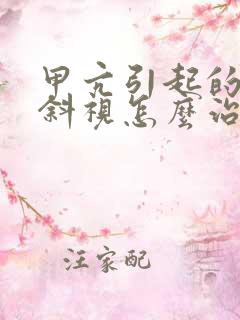 甲亢引起的
斜視怎麼治
汪家配